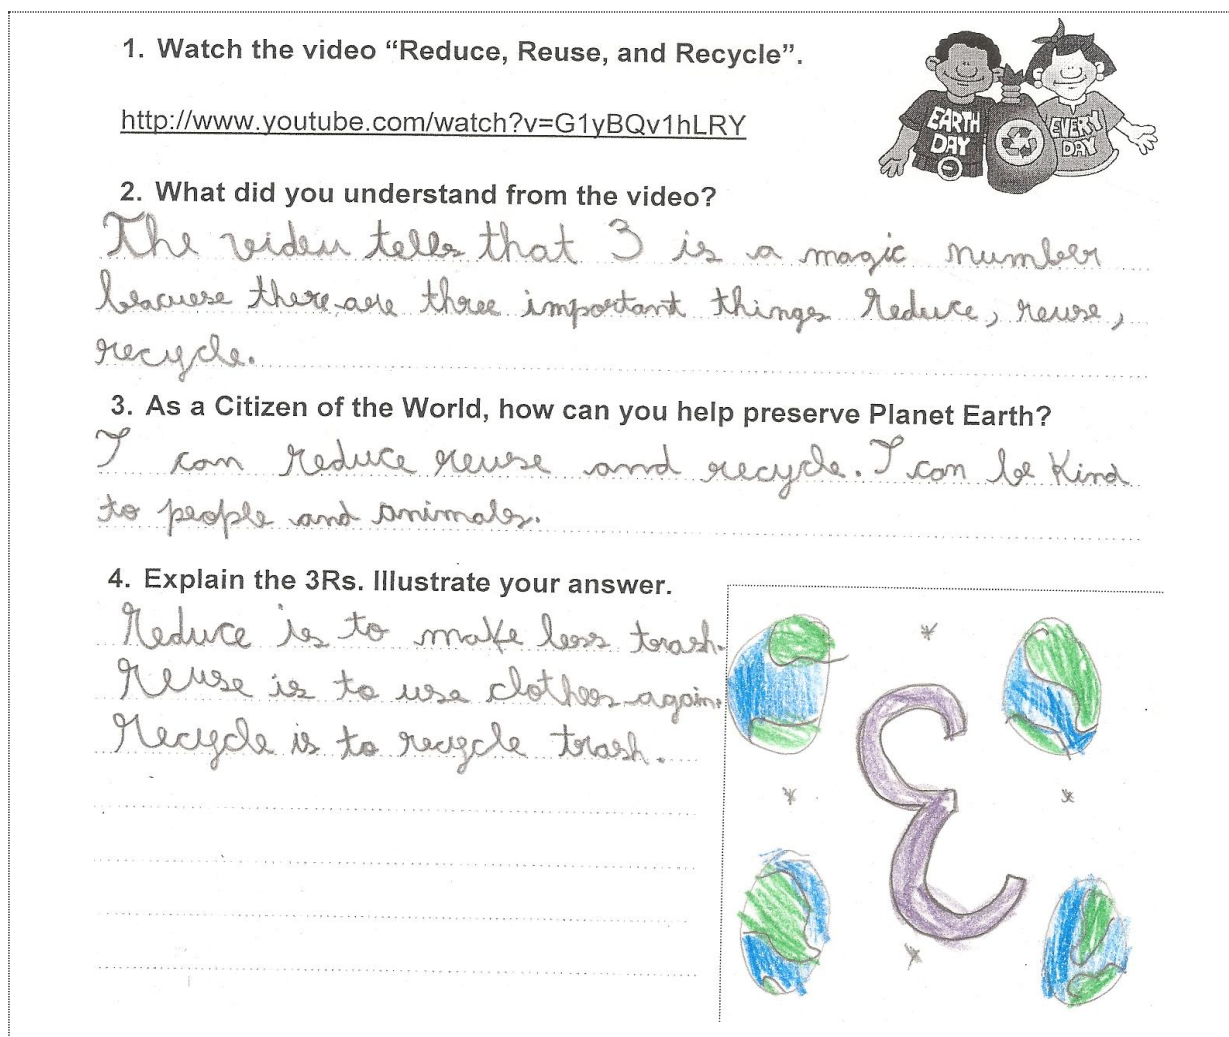 1. Watch the video “Reduce, Reuse, and Recycle”.
EARTH DAY
EVERY DAY
http://www.youtube.com/watch?v=G1yBQv1hLRY
2. What did you understand from the video?
The video tells that 3 is a magic number
beacuese there are three important things Reduce, reuse,
recycle.
3. As a Citizen of the World, how can you help preserve Planet Earth?
I can Reduce reuse and recycle. I can be Kind
to people and animals.
4. Explain the 3Rs. Illustrate your answer.
Reduce is to make less trash.
Reuse is to use clothes again.
Recycle is to recycle trash.
3